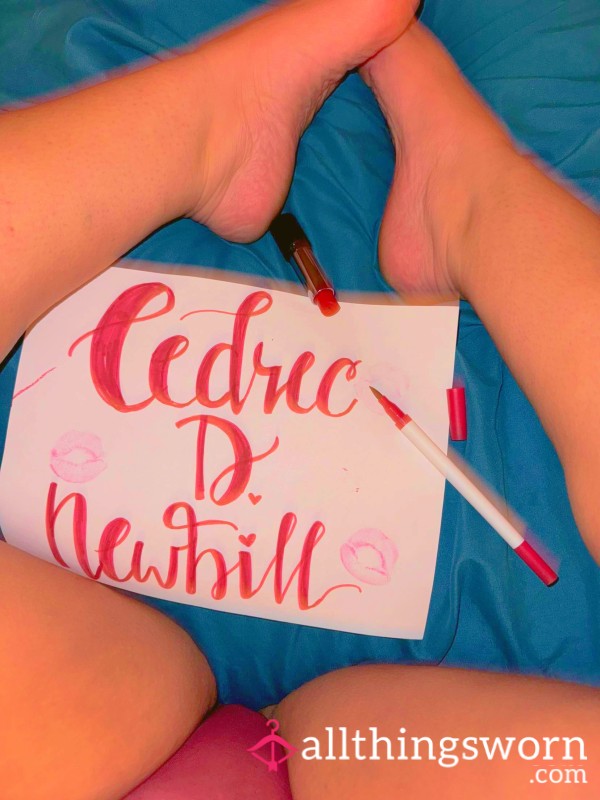 Cedrec
D.
Newhill
allthingsworn
.com